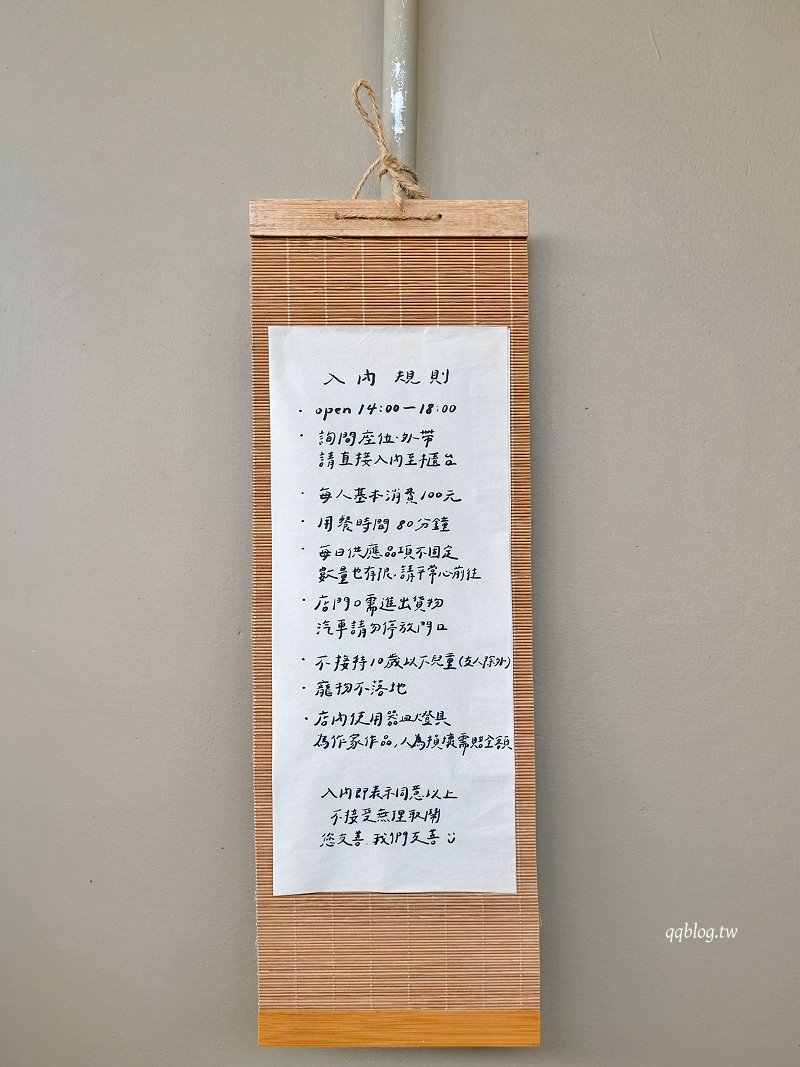 入內規則
・open 14:00－18:00
・詢問座位・外帶
請直接入內至櫃台
・每人基本消費100元
・用餐時間80分鐘
・每日供應品項不固定
數量也有限,請平常心前往
・店門口需進出貨物
汽車請勿停放門口
・不接待10歲以下兒童(友人除外)
・寵物不落地
・店內使用器皿燈具
為作家作品,人為損壞需賠全額
入內即表示同意以上
不接受無理取鬧
您友善.我們友善
qqblog.tw